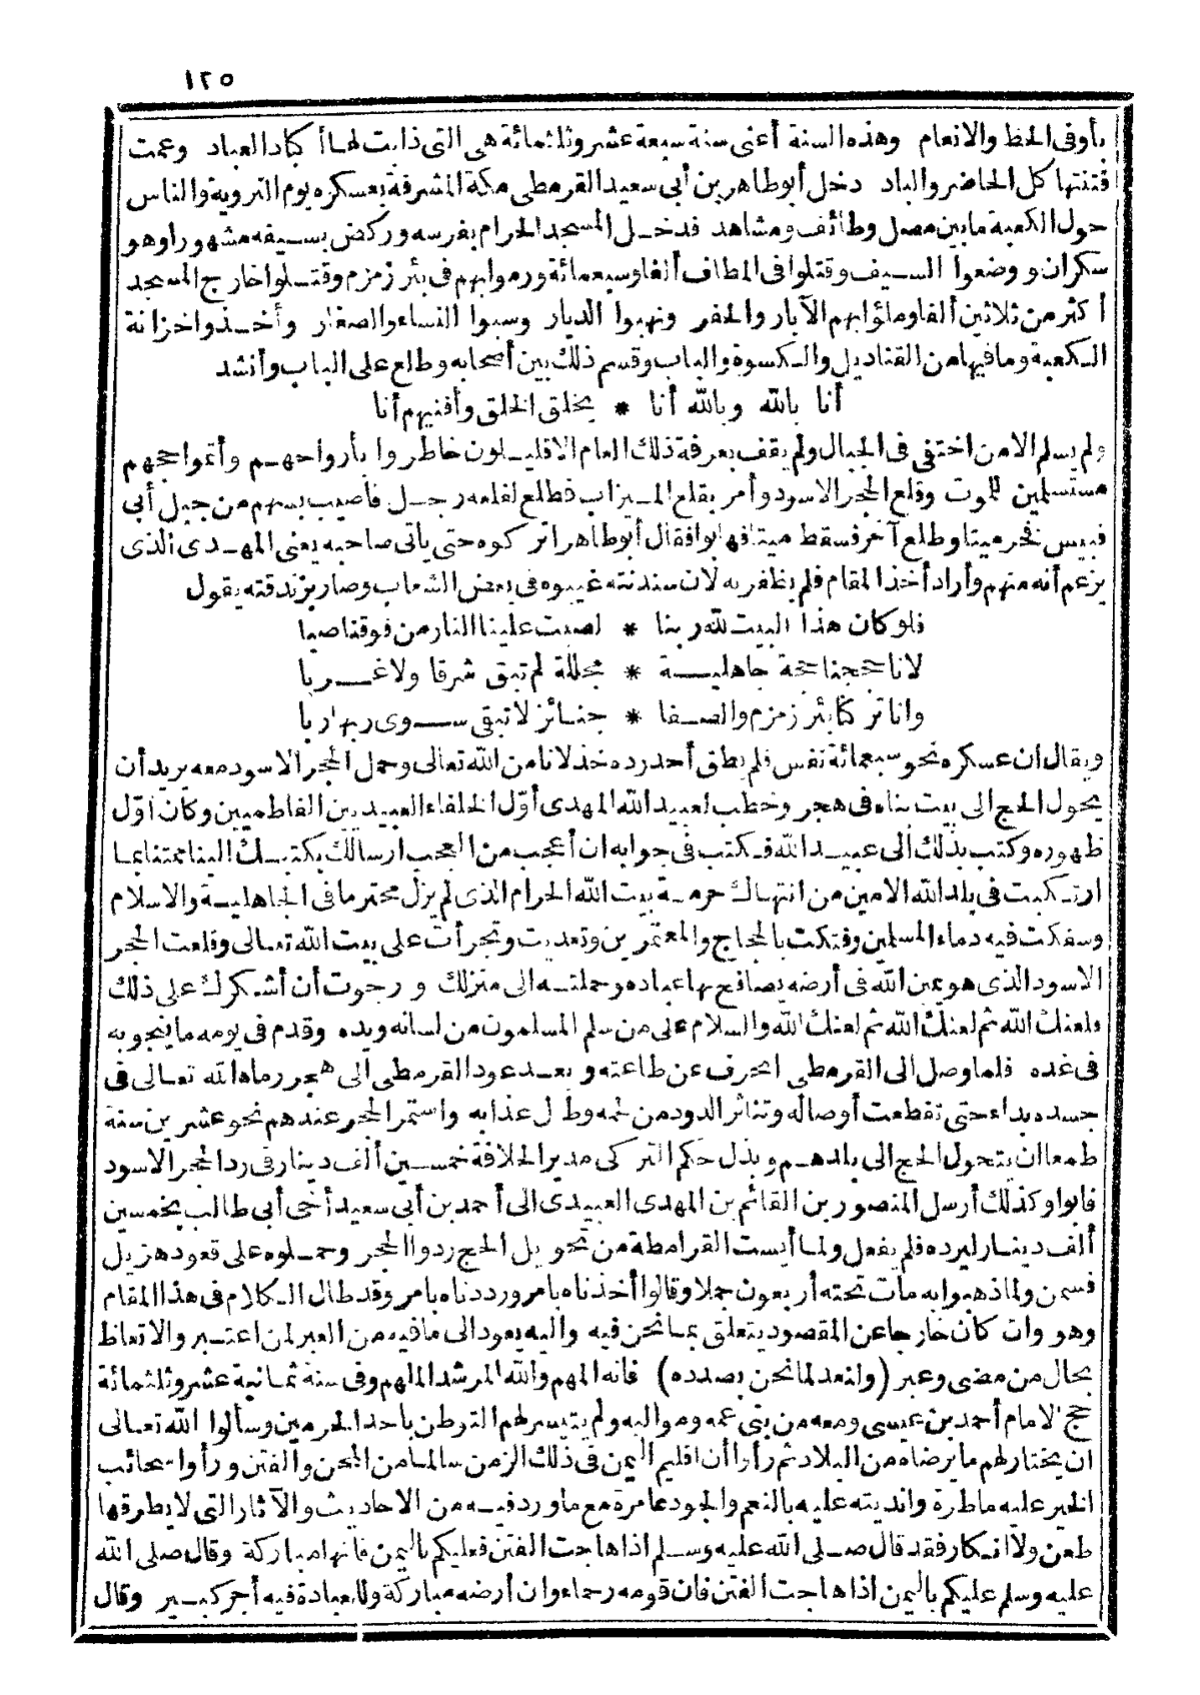 ١٢٥
بأوفى الحظ والانعام وهذه السنة أعنى سنة سبعة عشر وثلثمائة هى التى ذابت لها أكباد العباد وعمت
فتنتها كل الحاضر والباد دخل أبو طاهر بن أبى سعيد القرمطى مكة المشرفة بعسكره يوم التروية والناس
حول الكعبة ما بين مصل وطائف ومشاهد فدخل المسجد الحرام بفرسه وركض بسيفه مشهورا وهو
سكران ووضعوا السيف وقتلوا فى المطاف ألفا وسبعمائة ورموا بهم فى بئر زمزم وقتلوا خارج المسجد
أكثر من ثلاثين ألفا وملؤا بهم الآبار والحفر ونهبوا الديار وسبوا النساء والصغار وأخذوا خزانة
الكعبة وما فيها من القناديل والكسوة والباب وقسم ذلك بين أصحابه وطلع على الباب وأنشد
أنا بالله وبالله أنا * يخلق الخلق وأفنيهم أنا
ولم يسلم الا من اختفى فى الجبال ولم يقف بعرفة ذلك العام الا قليلون خاطروا بأرواحهم وأتموا حجهم
مستسلمين للموت وقلع الحجر الاسود وأمر بقلع الميزاب فطلع لقلعه رجل فأصيب بسهم من جبل أبى
قبيس فخر ميتا وطلع آخر فسقط ميتا فهابوا فقال أبو طاهر اتركوه حتى يأتى صاحبه يعنى المهدى الذى
يزعم أنه منهم وأراد أخذ المقام فلم يظفر به لان سدنته غيبوه فى بعض الشعاب وصار بزندقته يقول
فلو كان هذا البيت لله ربنا * لصبت علينا النار من فوقنا صبا
لانا حججنا حجة جاهلية * مجللة لم تبق شرقا ولا غربا
وانا تركنا بئر زمزم والصفا * جنائز لا تبقى سوى ربها ربا
ويقال ان عسكره نحو سبعمائة نفس فلم يطق أحد رده خذلانا من الله تعالى وحمل الحجر الاسود معه يريد أن
يحول الحج الى بيت بناه فى هجر وخطب لعبيد الله المهدى أول الخلفاء العبيديين الفاطميين وكان أول
ظهوره وكتب بذلك الى عبيد الله فكتب فى جوابه ان أعجب من العجب ارسالك بكتبك الينا ممتنا بما
ارتكبت فى بلد الله الامين من انتهاك حرمة بيت الله الحرام الذى لم يزل محترما فى الجاهلية والاسلام
وسفكت فيه دماء المسلمين وفتكت بالحجاج والمعتمرين وتعديت وتجرأت على بيت الله تعالى وقلعت الحجر
الاسود الذى هو يمين الله فى أرضه يصافح بها عباده وحملته الى منزلك ورجوت أن أشكرك على ذلك
فلعنك الله ثم لعنك الله ثم لعنك الله والسلام على من سلم المسلمون من لسانه ويده وقدم فى يومه ما ينجو به
فى غده فلما وصل الى القرمطى انحرف عن طاعته وبعد عود القرمطى الى هجر رماه الله تعالى فى
جسده بداء حتى تقطعت أوصاله وتناثر الدود من لحمه وطال عذابه واستمر الحجر عندهم نحو عشرين سنة
طمعا ان يتحول الحج الى بلدهم وبذل حكم التركى مدير الخلافة خمسين ألف دينار فى رد الحجر الاسود
فابوا وكذلك أرسل المنصور بن القائم بن المهدى العبيدى الى أحمد بن أبى سعيد أخى أبى طالب بخمسين
ألف دينار ليرده فلم يفعل ولما أيست القرامطة من تحويل الحج ردوا الحجر وحملوه على قعود هزيل
فسمن ولما ذهبوا به مات تحته أربعون جملا وقالوا أخذناه بامر ورددناه بامر وقد طال الكلام فى هذا المقام
وهو وان كان خارجا عن المقصود يتعلق بما نحن فيه واليه يعود الى ما فيه من العبر لمن اعتبر والاتعاظ
بحال من مضى وعبر (ولنعد لما نحن بصدده) فانه المهم والله المرشد الملهم وفى سنة ثمانية عشر وثلثمائة
حج الامام أحمد بن عيسى ومعه من بنى عمه ومواليه ولم يتيسر لهم التوطن باحد الحرمين وسألوا الله تعالى
ان يختار لهم ما يرضاه من البلاد ثم رأوا أن اقليم اليمن فى ذلك الزمن سالما من المحن والفتن ورأوا سحائب
الخير عليه ماطرة وانديته عليه بالنعم والجود عامرة مع ما ورد فيه من الاحاديث والآثار التى لا يطرقها
طعن ولا انكار فقد قال صلى الله عليه وسلم اذا هاجت الفتن فعليكم باليمن فانها مباركة وقال صلى الله
عليه وسلم عليكم باليمن اذا هاجت الفتن فان قومه رحماء وان أرضه مباركة وللعبادة فيه أجر كبير وقال